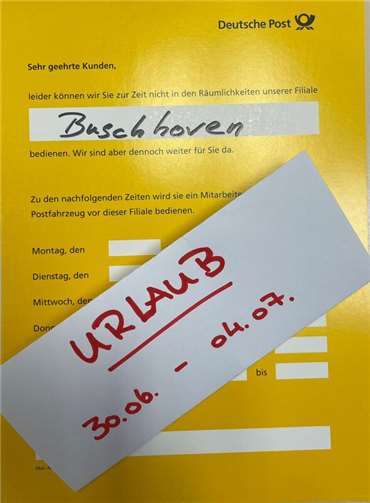 Deutsche Post
Sehr geehrte Kunden,
leider können wir Sie zur Zeit nicht in den Räumlichkeiten unserer Filiale
Buschhoven
bedienen. Wir sind aber dennoch weiter für Sie da.
Zu den nachfolgenden Zeiten wird sie ein Mitarbeite
Postfahrzeug vor dieser Filiale bedienen.
Montag, den
Dienstag, den
Mittwoch, den
URLAUB
30.06. - 04.07.
bis